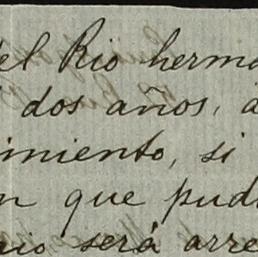 del Rio herma
dos años, a
imiento, si
n que pud
nio será arre